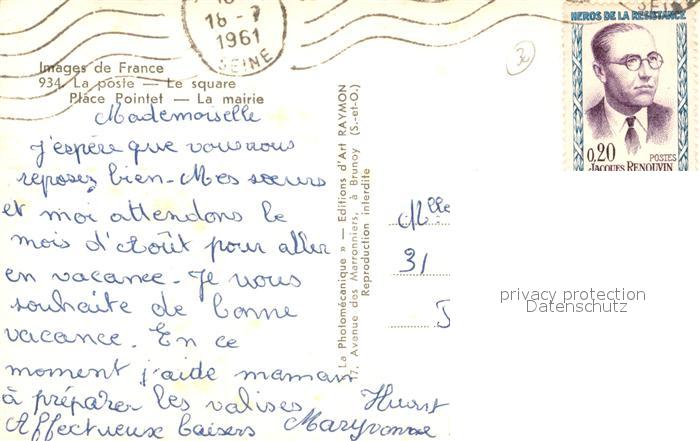 18-7
1961
SEINE
HEROS DE LA RESISTANCE
0,20
POSTES
JACQUES RENOUVIN
Images de France
934. La poste — Le square
Place Pointet — La mairie
Mademoiselle
J'espère que vous vous
reposez bien - Mes sœurs
et moi attendons le
mois d'Août pour aller
en vacance - Je vous
souhaite de bonne
vacance. En ce
moment j'aide maman
à préparer les valises
Affectueux baisers Maryvonne
« La Photomécanique » — Editions d'Art RAYMON
17, Avenue des Marronniers, à Brunoy (S.-et-O.)
Reproduction interdite
Mlle
31
privacy protection
Datenschutz